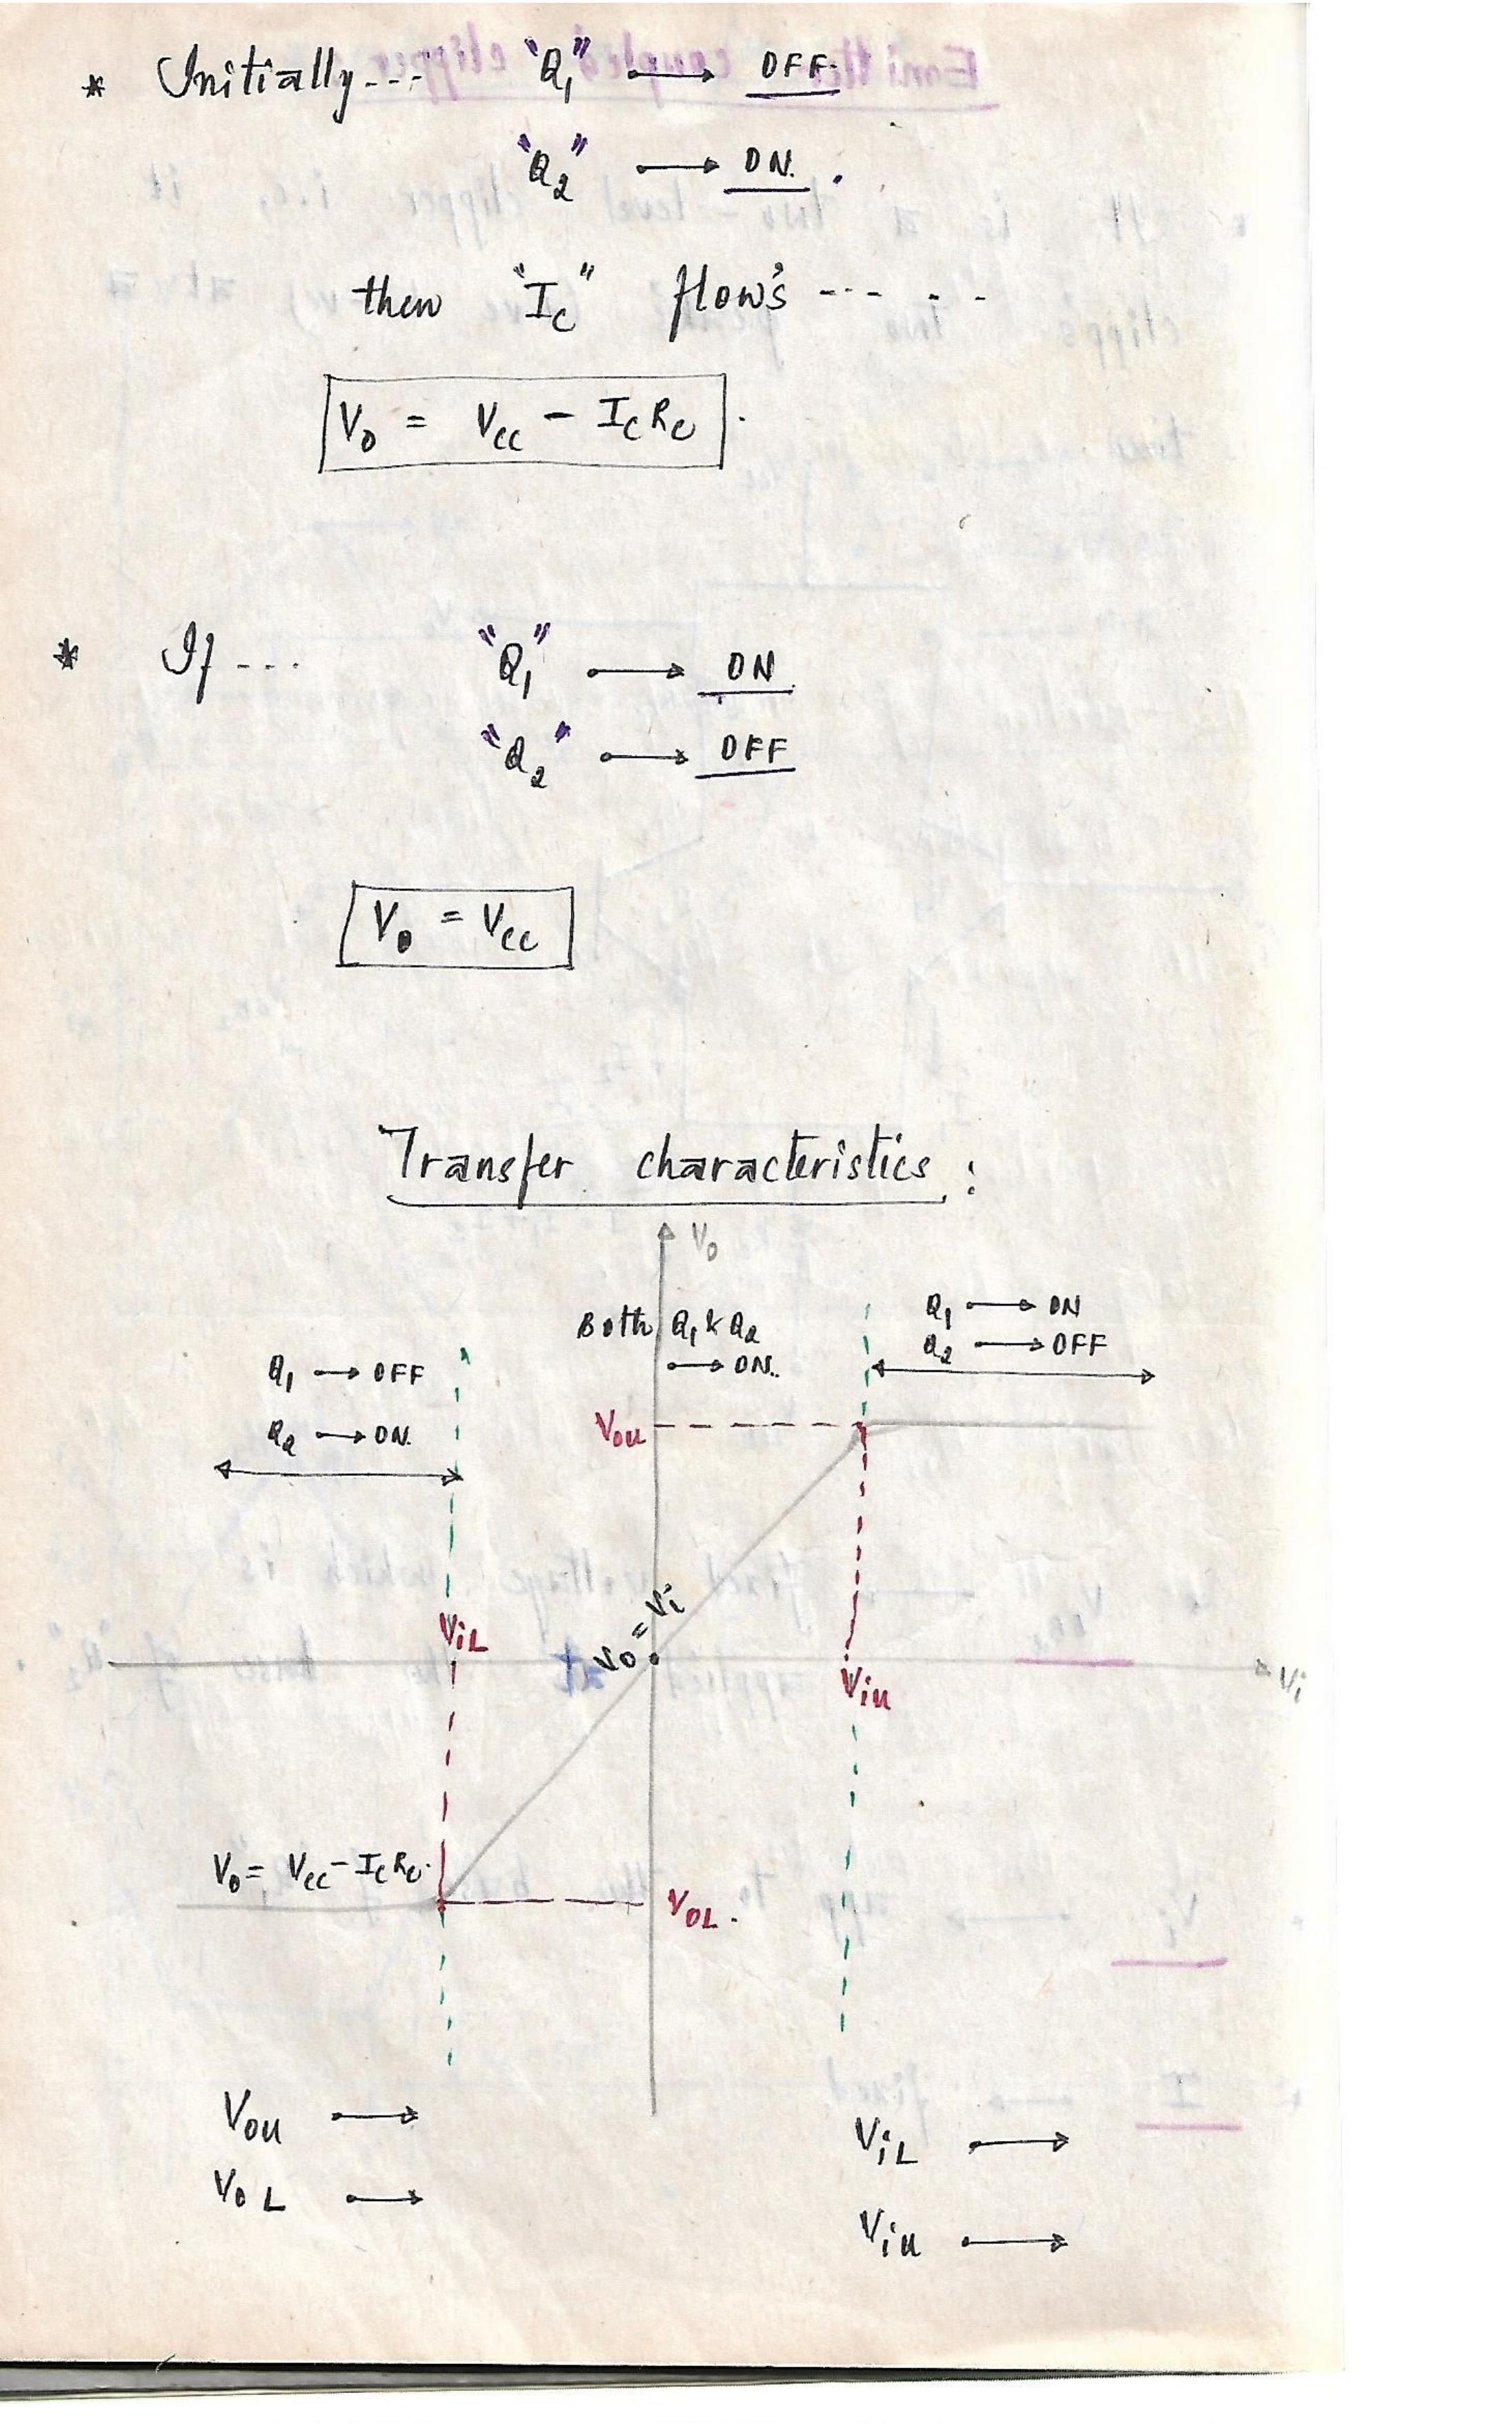 * Initially--- "Q1" → OFF.
"Q2" → ON.
then "Ic" flow's --- - -
Vo = Vcc - IcRc.
* If --- "Q1" → ON
"Q2" → OFF
Vo = Vcc
Transfer characteristics :
Vo
Q1 → ON
Both Q1 & Q2
→ ON.
Q2 → OFF
Q1 → OFF
Q2 → ON.
Vou
Vo = Vi
ViL
Viu
Vi
Vo = Vcc - IcRc.
VOL.
Vou →
ViL →
VoL →
Viu →